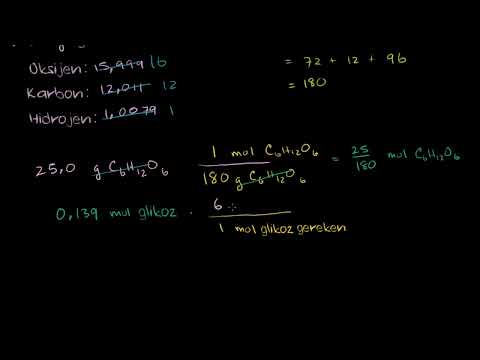 Oksijen: 15,999 16
= 72 + 12 + 96
Karbon: 12,011 12
= 180
Hidrojen: 1,0079 1
25,0 g C₆H₁₂O₆ 1 mol C₆H₁₂O₆ / 180 g C₆H₁₂O₆ = 25/180 mol C₆H₁₂O₆
0,139 mol glikoz · 6 / 1 mol glikoz gereken